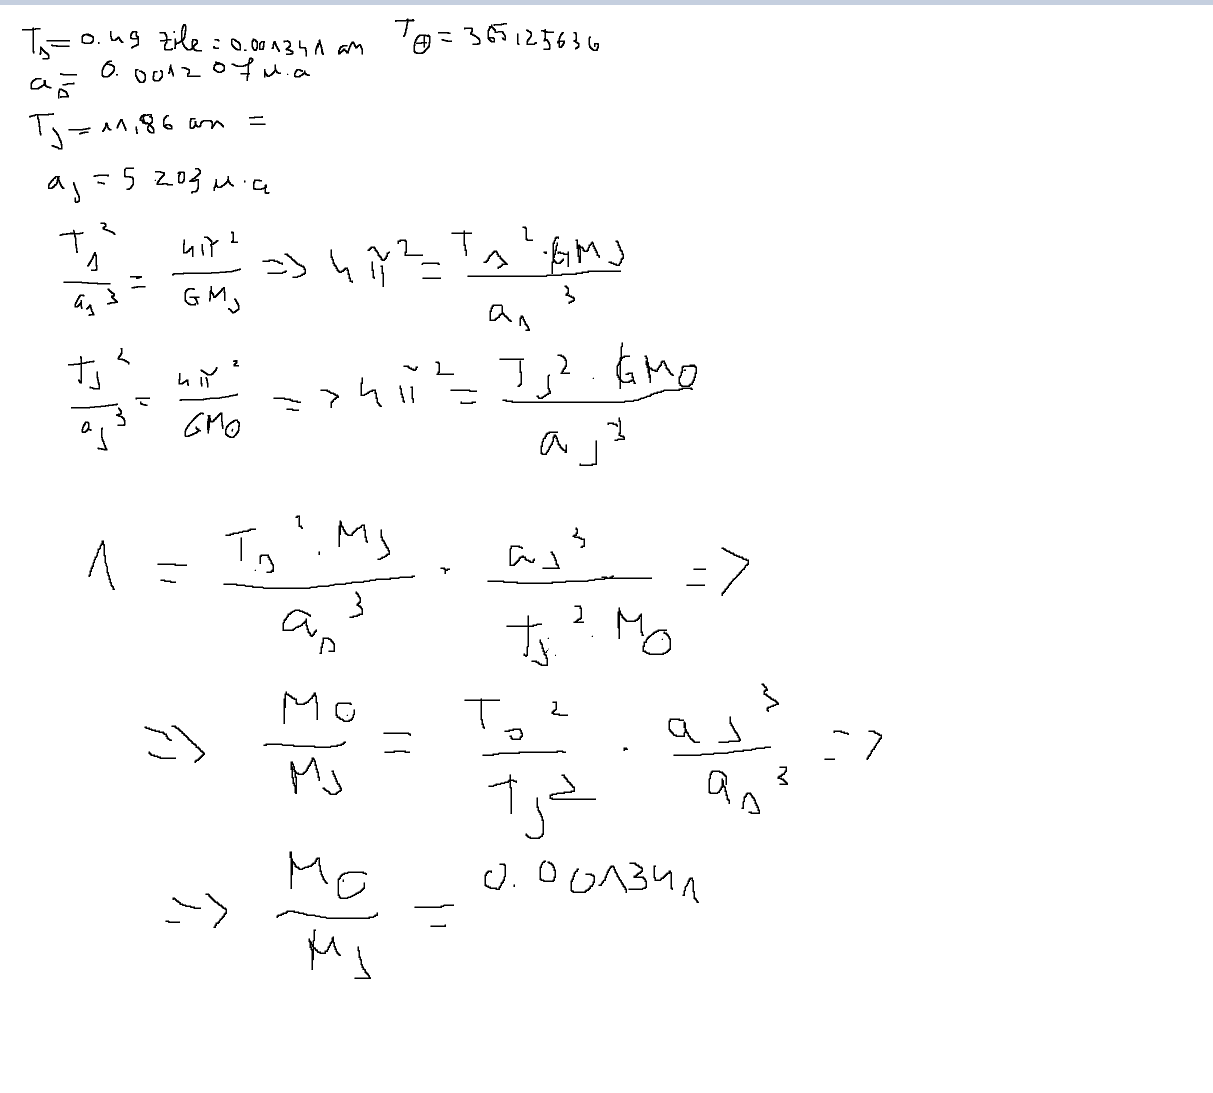 T_s = 0.49 zile = 0.001341 an T_⊕ = 365,25636
a_s = 0.001207 u.a
T_J = 11,86 an =
a_J = 5 203 u.a
T_s² / a_s³ = 4π² / GM_J => 4π² = T_s² · GM_J / a_s³
T_J² / a_J³ = 4π² / GM_O => 4π² = T_J² · GM_O / a_J³
1 = T_s² · M_J / a_s³ · a_J³ / T_J² · M_O =>
=> M_O / M_J = T_s² / T_J² · a_J³ / a_s³ =>
=> M_O / M_J = 0.001341